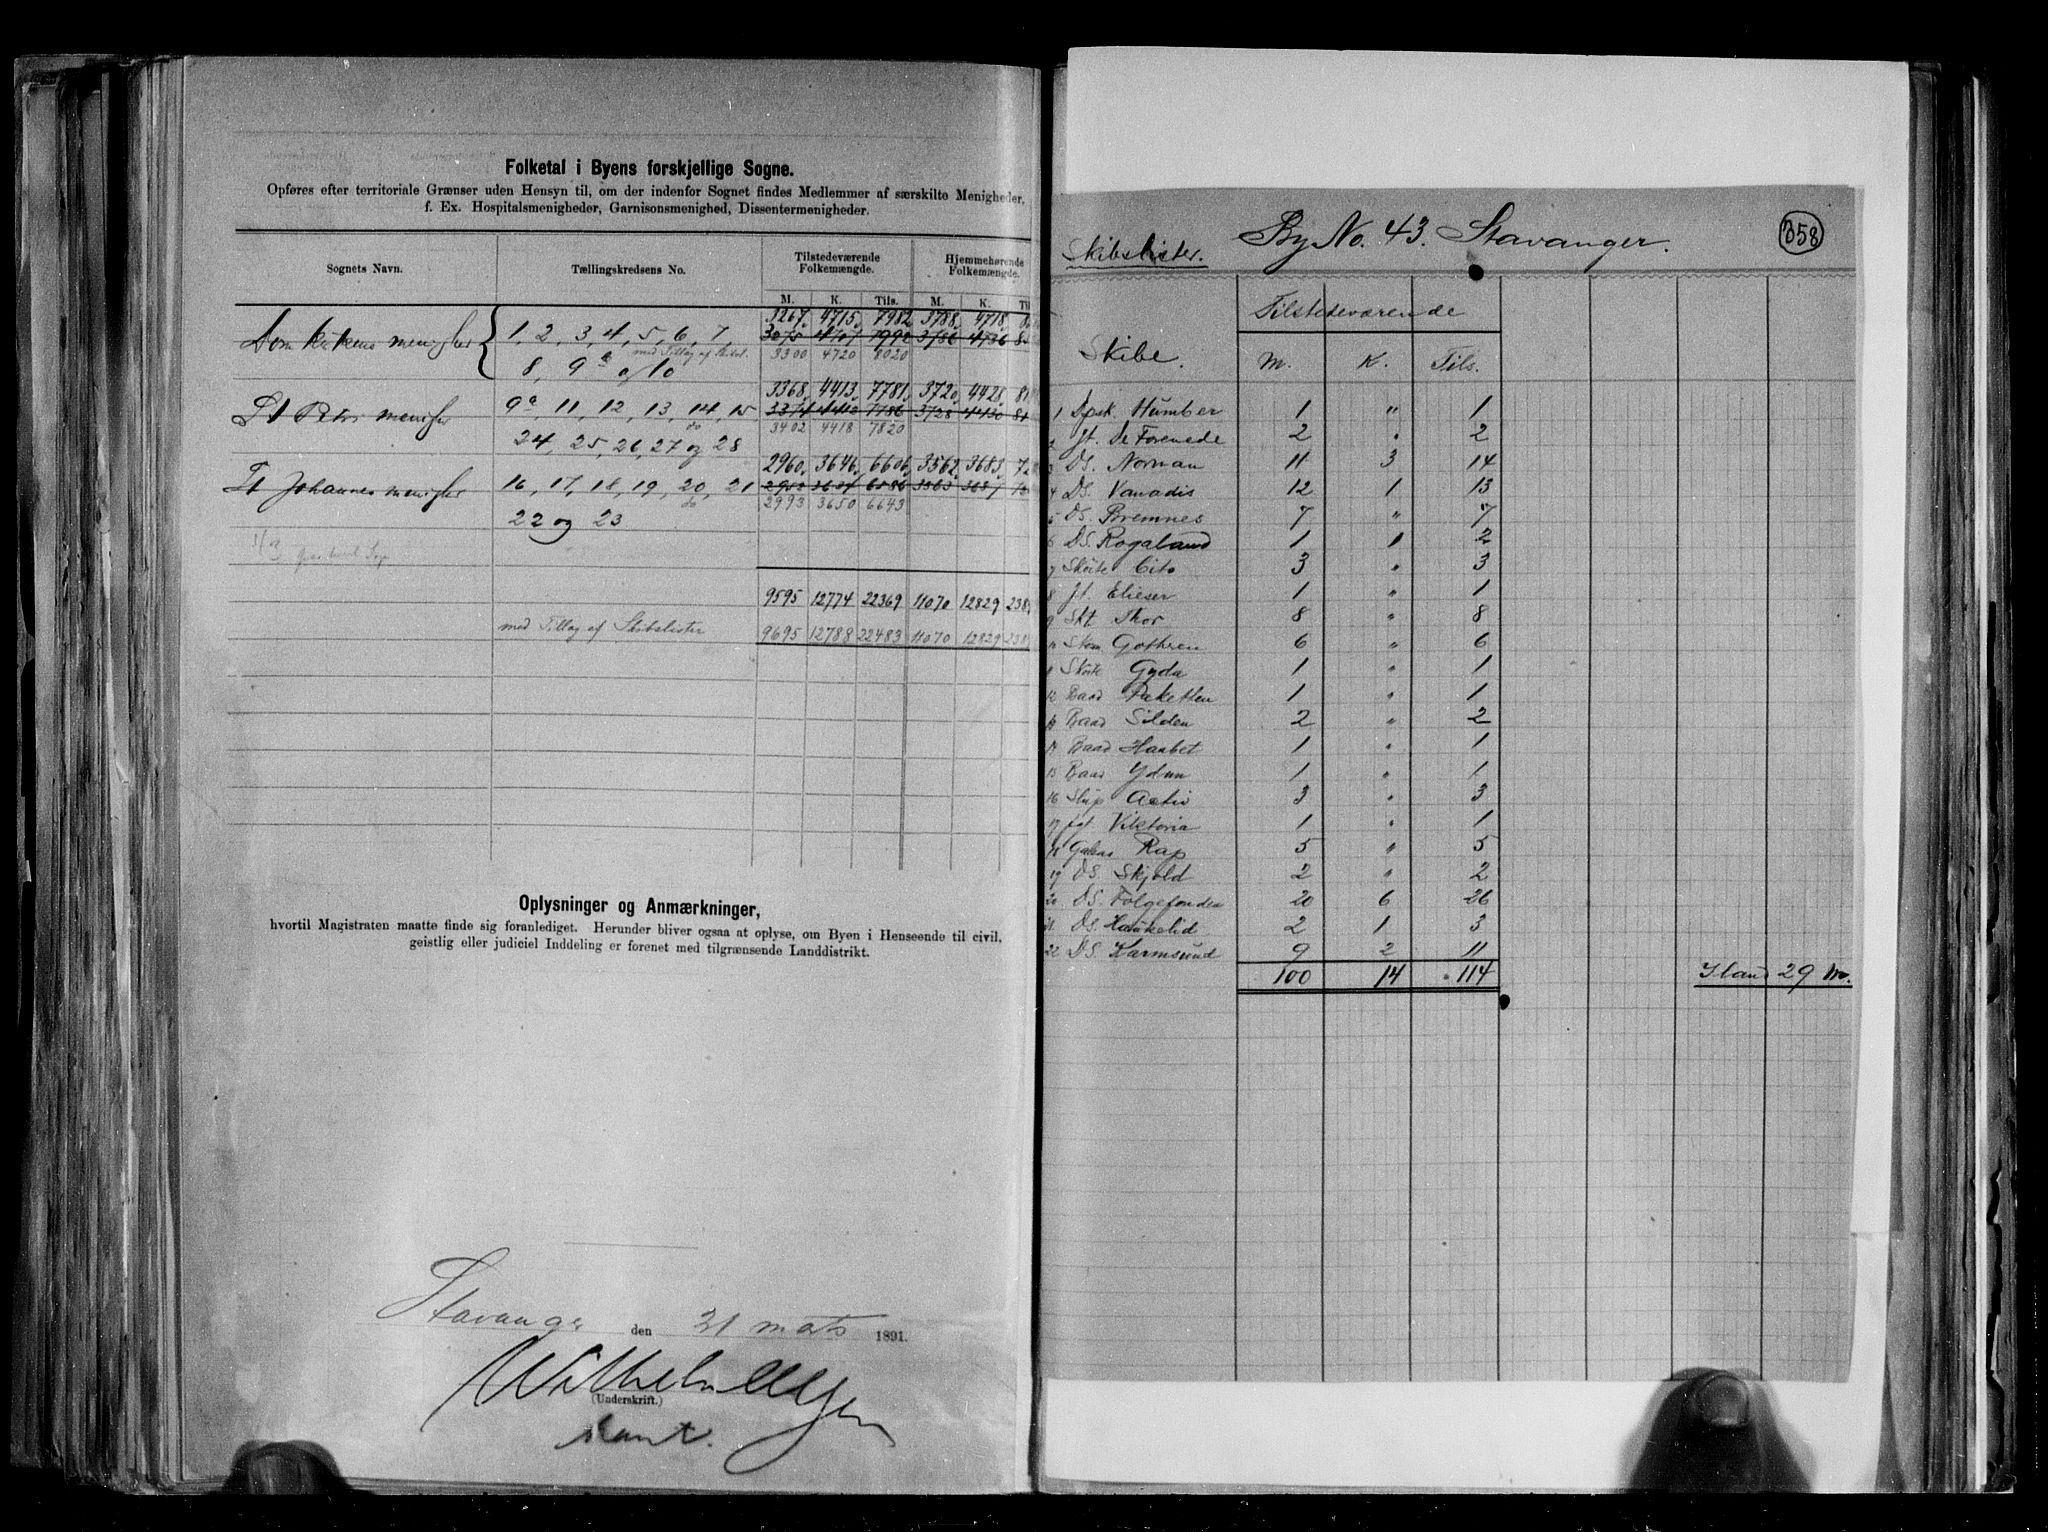 Folketal i Byens forskjellige Sogne.
Opføres efter territoriale Grænser uden Hensyn til, om der indenfor Sognet findes Medlemmer af særskilte Menigheder,
f. Ex. Hospitalsmenigheder, Garnisonsmenighed, Dissentermenigheder.
Sognets Navn. Tællingskredsens No. Tilstedeværende Folkemængde. Hjemmehørende Folkemængde.
M. K. Tils. M. K.
3267. 4715. 7982 3788. 4718.
Domkirkens menighet 1, 2, 3, 4, 5, 6, 7,
med Tillæg af Skibsl. 3300 4720 8020
8, 9 og 10
3368. 4413. 7781. 3720. 4428.
St Petri menighet 9a, 11, 12, 13, 14, 15
do 3402 4418 7820
24, 25, 26, 27 og 28
2960. 3646. 6606. 3562. 3683.
St Johannes menighet 16, 17, 18, 19, 20, 21
do 2993 3650 6643
22 og 23
9595 12774 22369 11070 12829
med Tillæg af Skibslister 9695 12788 22483 11070 12829
Oplysninger og Anmærkninger,
hvortil Magistraten maatte finde sig foranlediget. Herunder bliver ogsaa at oplyse, om Byen i Henseende til civil,
geistlig eller judiciel Inddeling er forenet med tilgrænsende Landdistrikt.
Stavanger den 31 mats 1891.
(Underskrift.)
358
Skibslister. By No. 43. Stavanger.
Tilstedeværende
Skibe. M. K. Tils.
1 Dpsk. Humber 1 " 1
2 Jt. De Forenede 2 " 2
3 DS. Norman 11 3 14
4 DS. Vanadis 12 1 13
5 DS. Bremnes 7 " 7
6 DS. Rogaland 1 1 2
7 Skøite Cito 3 " 3
8 Jt. Elieser 1 " 1
9 Skt. Thor 8 " 8
Gothren 6 " 6
11 Skøite Gyda 1 " 1
12 Baad Paketten 1 " 1
13 Baad Silden 2 " 2
14 Baad Haabet 1 " 1
15 Baad Ydun 1 " 1
16 Slup Activ 3 " 3
17 Jgt. Viktoria 1 " 1
18 Galeas Rap 5 " 5
19 DS. Skjold 2 " 2
20 DS. Folgefonden 20 6 26
21 DS. Haukelid 2 1 3
22 DS. Karmsund 9 2 11
100 14 114
29 m.